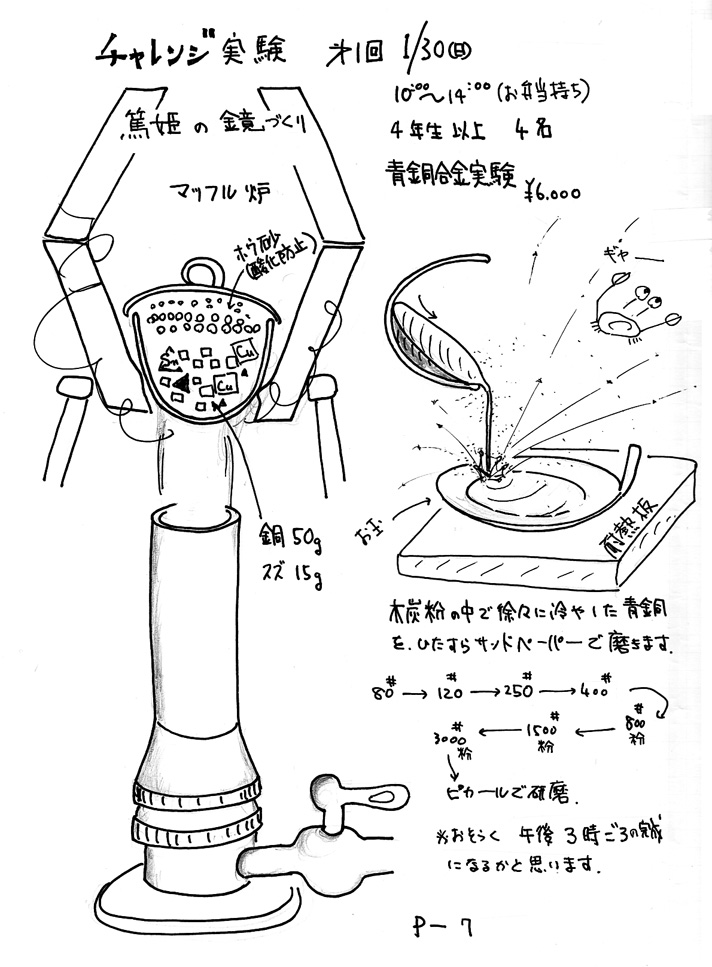 チャレンジ実験 第1回 1/30(日)
10:00～14:00(お弁当持ち)
4年生以上 4名
青銅合金実験
¥6.000
篤姫の鏡づくり
マッフル炉
ホウ砂
(酸化防止)
Sn
Cu
Cu
銅50g
スズ15g
ギャー
お玉
耐熱板
木炭粉の中で徐々に冷やした青銅
を、ひたすらサンドペーパーで磨きます.
80# → 120# → 250# → 400#
800# 粉 ← 1500# 粉 ← 3000# 粉
ピカールで研磨.
※おそらく 午後3時ごろの完成
になるかと思います.
P-7